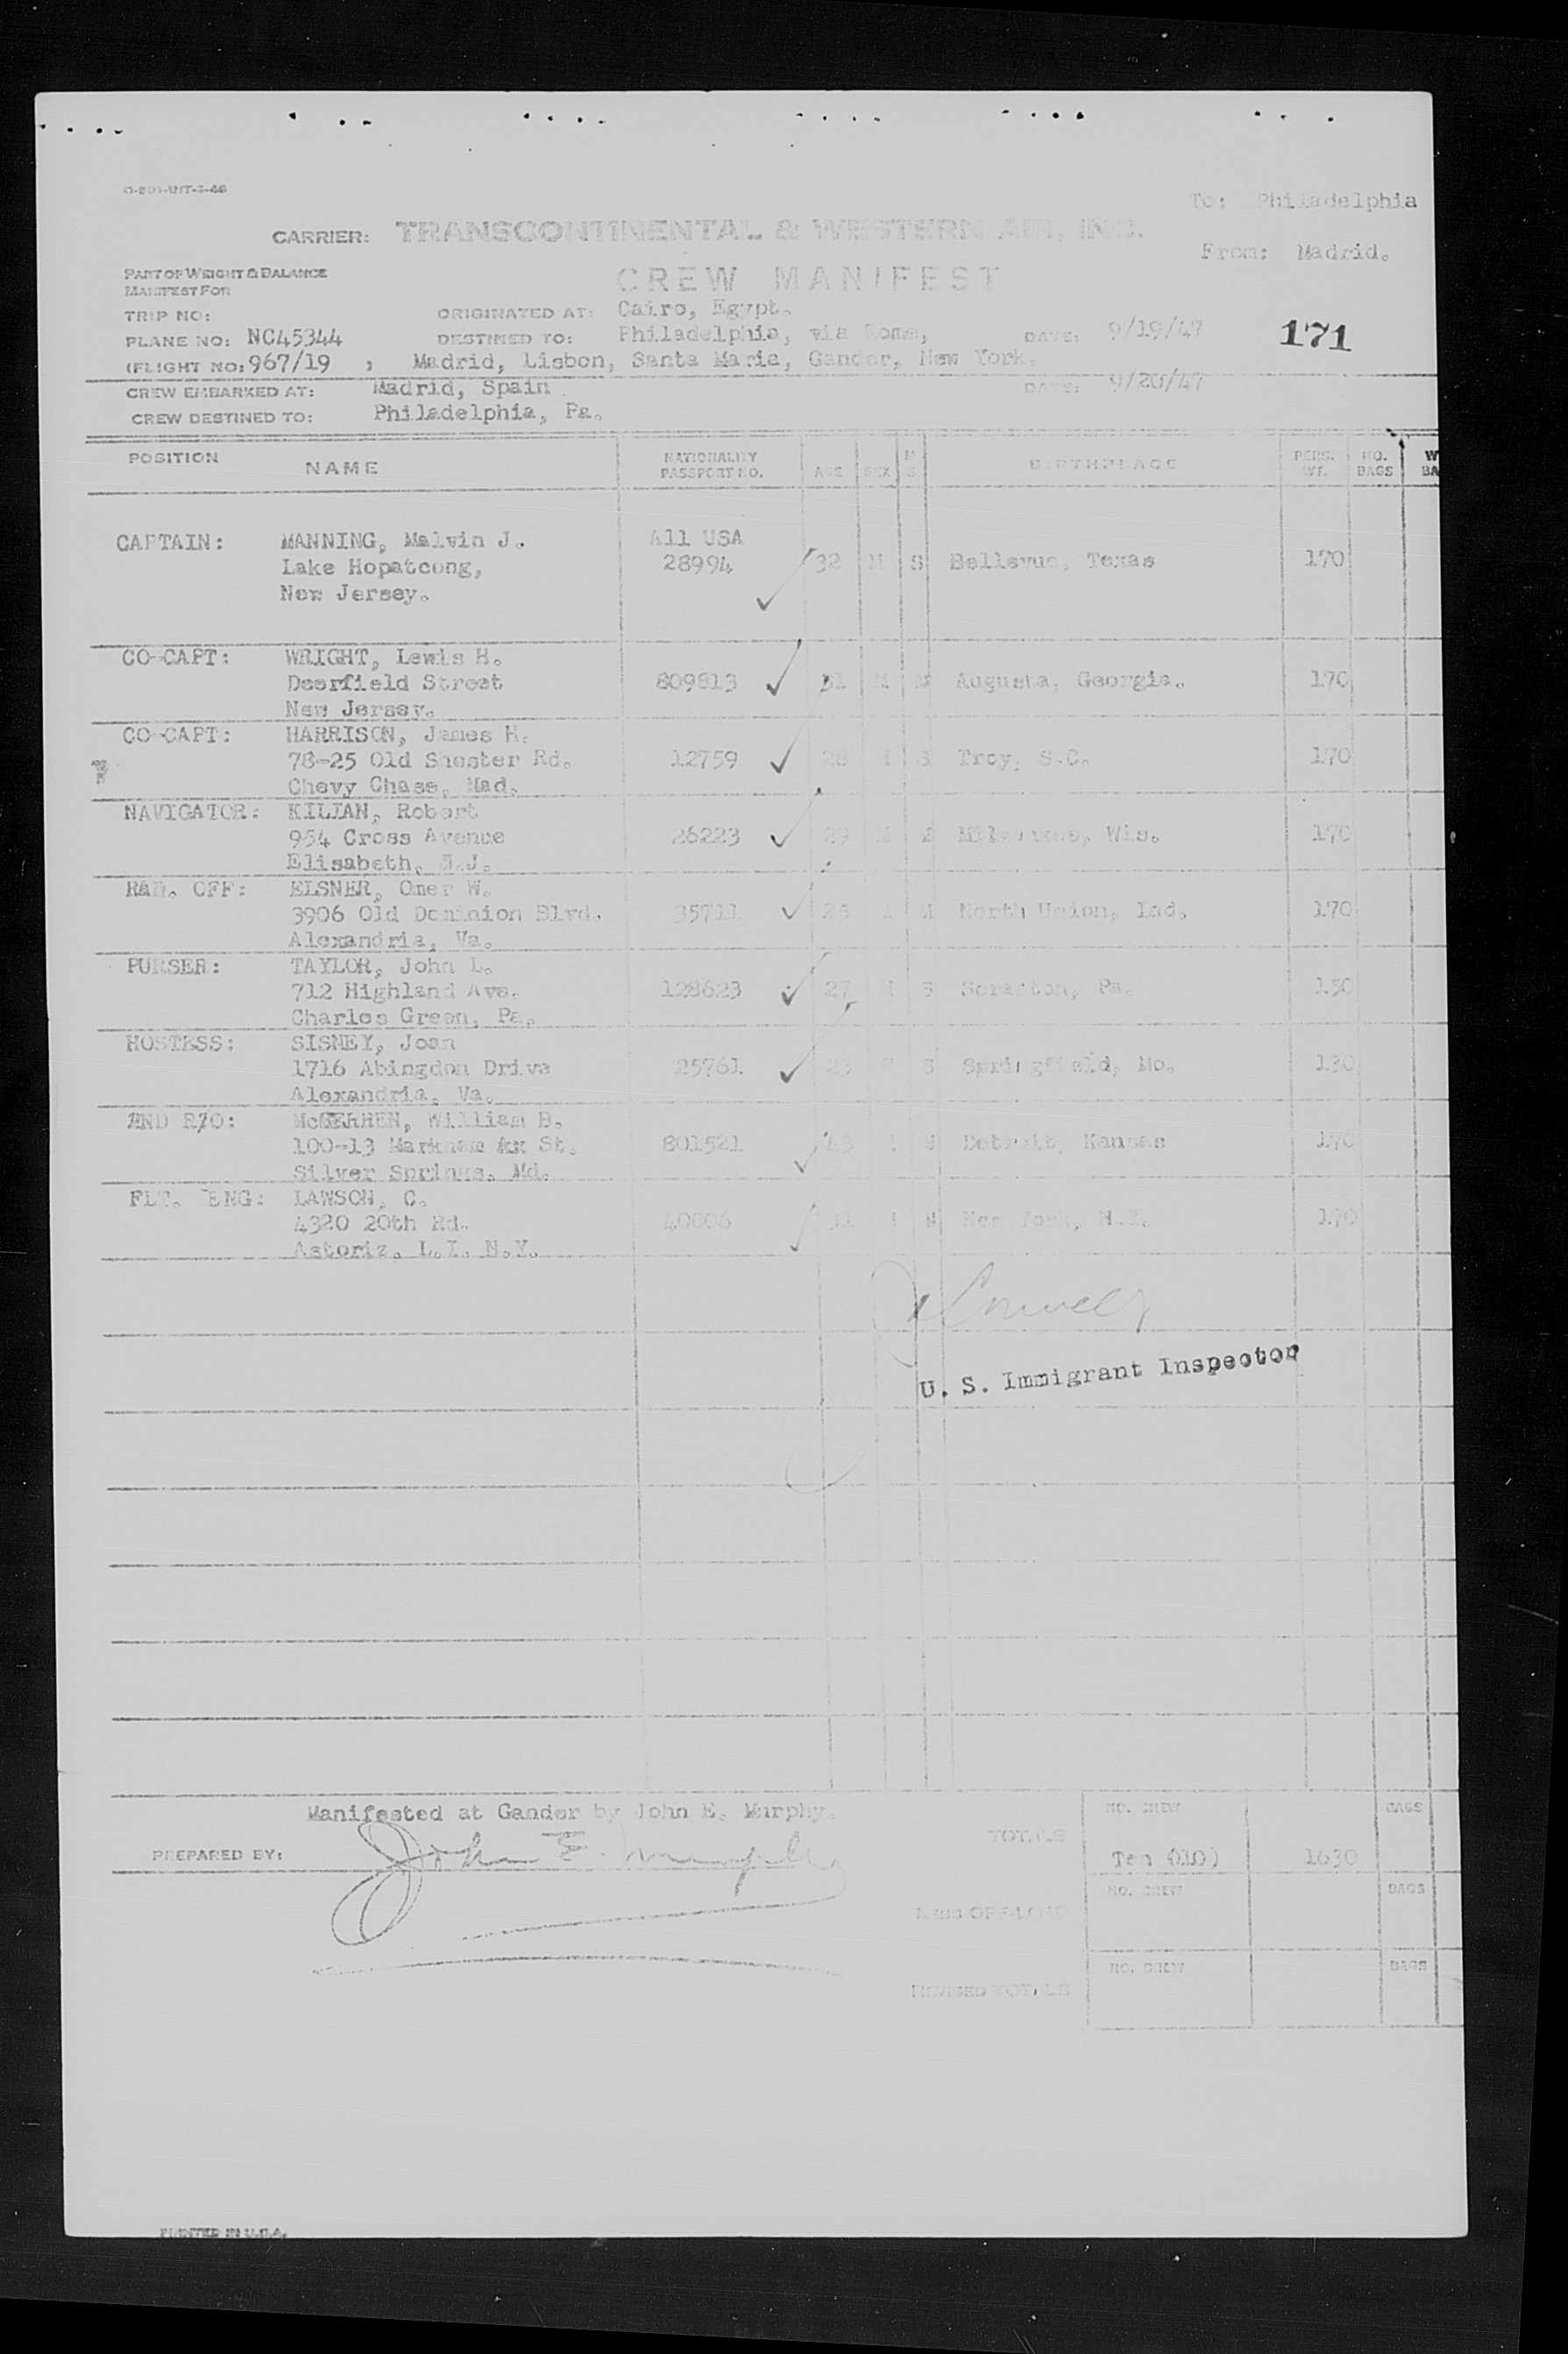 To: Philadelphia
CARRIER: TRANSCONTINENTAL & WESTERN AIR, INC.
From: Madrid.
PART OF WEIGHT & BALANCE
MANIFEST FOR
CREW MANIFEST
TRIP NO: ORIGINATED AT: Cairo, Egypt.
PLANE NO: NC45344 DESTINED TO: Philadelphia, via Rome, DATE: 9/19/47 171
(FLIGHT NO: 967/19 ; Madrid, Lisbon, Santa Maria, Gander, New York.
CREW EMBARKED AT: Madrid, Spain DATE: 9/20/47
CREW DESTINED TO: Philadelphia, Pa.
POSITION NAME NATIONALITY PASSPORT NO. AGE SEX M S BIRTHPLACE PERS. WT. NO. BAGS W BA
CAPTAIN: MANNING, Malvin J. All USA
Lake Hopatcong, 28994 32 M S Bellevue, Texas 170
New Jersey.
CO-CAPT: WRIGHT, Lewis H.
Deerfield Street 809813 31 M M Augusta, Georgia. 170
New Jersey.
CO-CAPT: HARRISON, James H.
78-25 Old Shester Rd. 12759 28 M S Troy, S.C. 170
Chevy Chase, Mad.
NAVIGATOR: KILIAN, Robert
954 Cross Avenue 26223 29 M M Milwaukee, Wis. 170
Elisabeth, N.J.
RAD. OFF: ELSNER, Omer W.
3906 Old Dominion Blvd. 35711 26 M M North Union, Ind. 170
Alexandria, Va.
PURSER: TAYLOR, John L.
712 Highland Ave. 128623 27 M S Scranton, Pa. 150
Charles Green, Pa.
HOSTESS: SISNEY, Joan
1716 Abingdon Drive 25761 23 F S Springfield, Mo. 130
Alexandria, Va.
2ND R/O: William B.
100-13 Markham St. 801521 M Detroit, Kansas 170
Silver Springs, Md.
FLT. ENG: LAWSON, C.
4320 20th Rd. 31 M M New York, N.Y. 170
Astoria, L.I. N.Y.
U. S. Immigrant Inspector
Manifested at Gander by John E. Murphy.
PREPARED BY: John E. Murphy
TOTALS NO. CREW Ten (10) 1630 BAGS
LESS OFF-LOAD NO. CREW BAGS
REVISED TOTALS NO. CREW BAGS
PRINTED IN U.S.A.